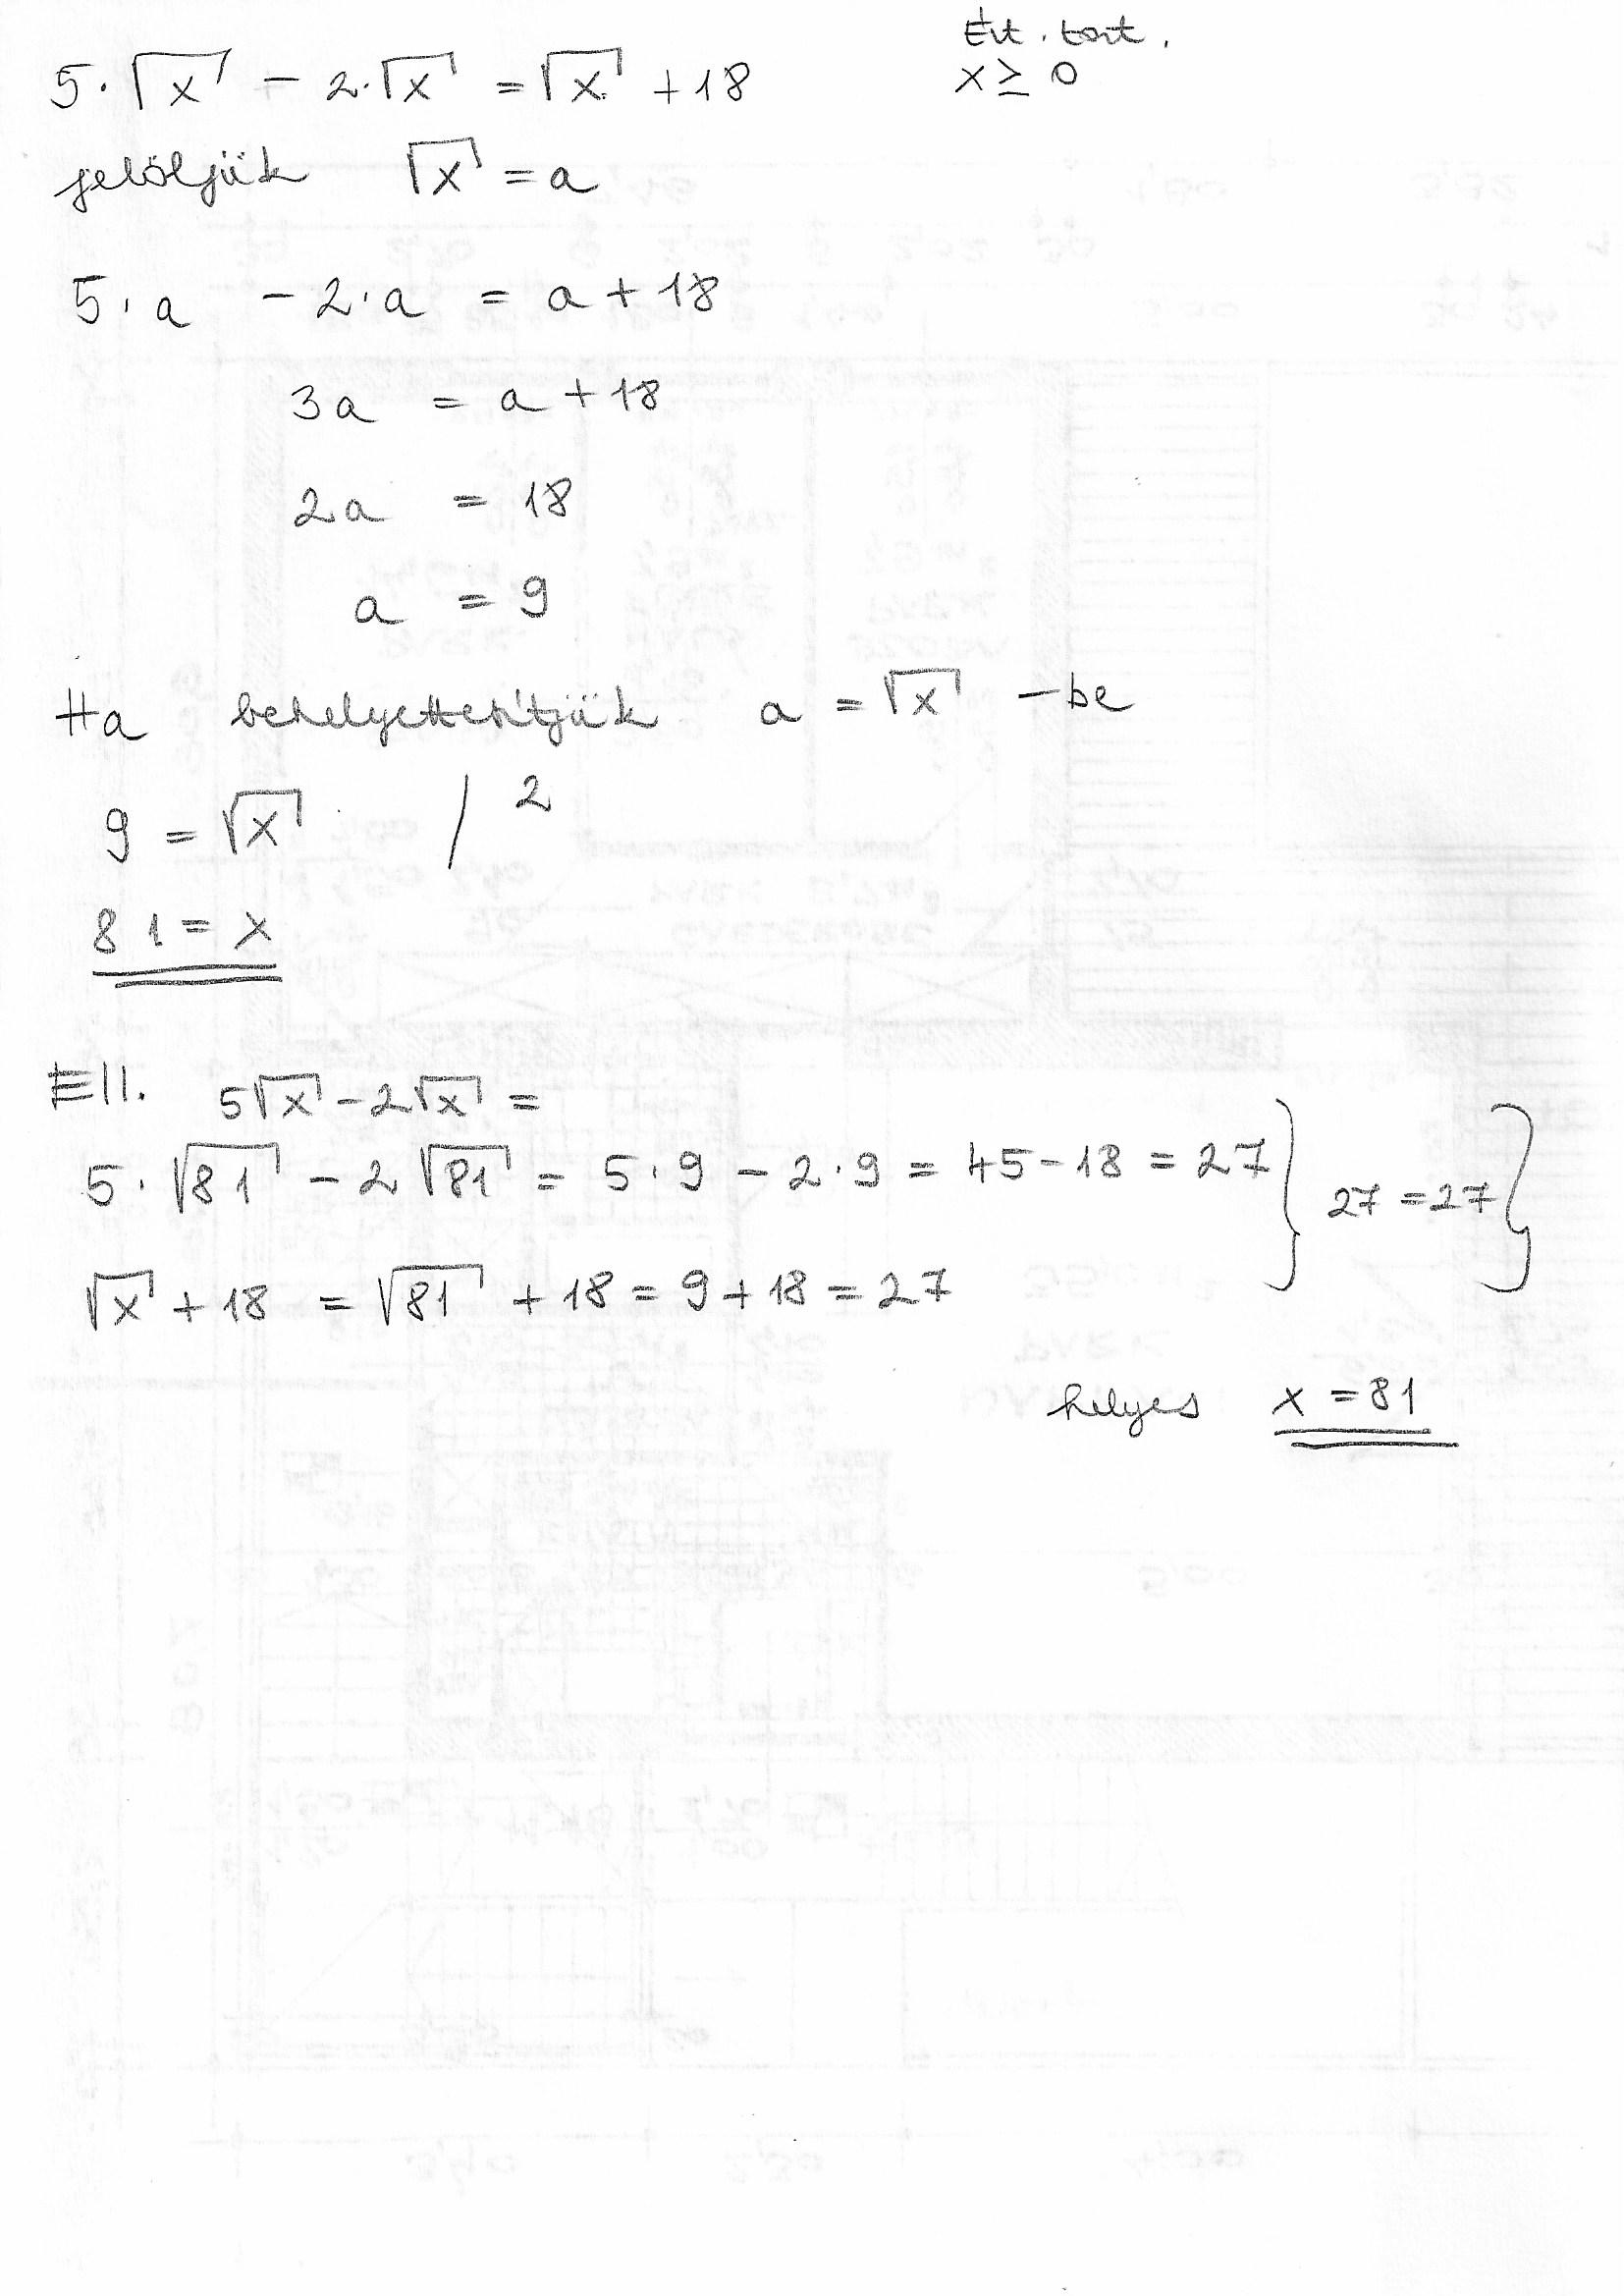 5·√x − 2·√x = √x + 18
Ért. tart.
x ≥ 0
jelöljük √x = a
5·a − 2·a = a + 18
3a = a + 18
2a = 18
a = 9
Ha behelyettesítjük a = √x −be
9 = √x / ²
81 = x
Ell. 5√x − 2√x =
5·√81 − 2√81 = 5·9 − 2·9 = 45 − 18 = 27 } 27 = 27 }
√x + 18 = √81 + 18 = 9 + 18 = 27
helyes x = 81